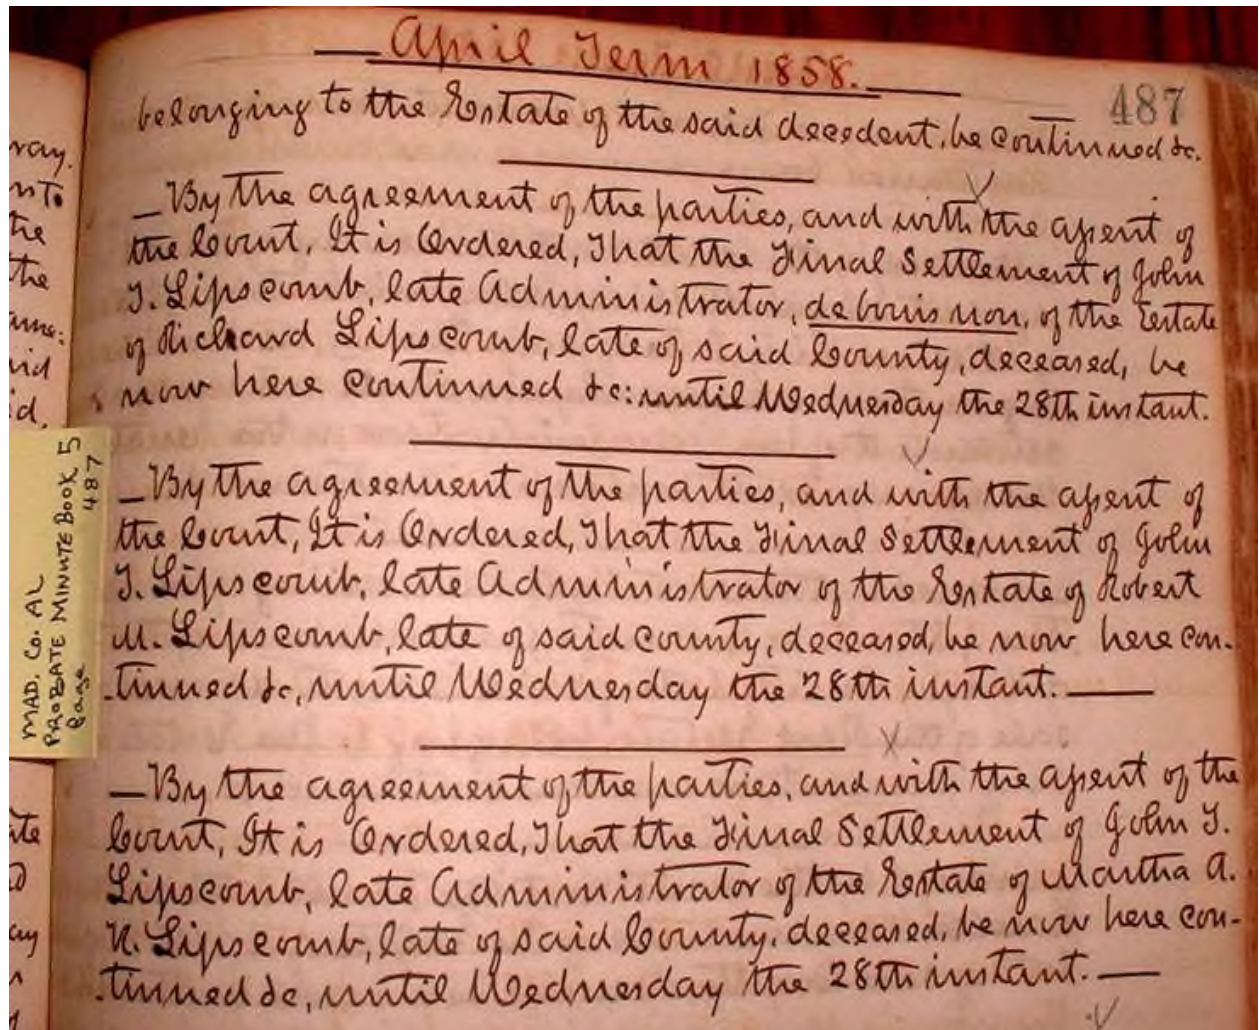 April Term 1858.
487
belonging to the Estate of the said decedent, be continued &c.
By the agreement of the parties, and with the assent of
the Court, It is Ordered, That the Final Settlement of John
T. Lipscomb, late Administrator, de bonis non, of the Estate
of Richard Lipscomb, late of said County, deceased, be
now here continued &c: until Wednesday the 28th instant.
By the agreement of the parties, and with the assent of
the Court, It is Ordered, That the Final Settlement of John
T. Lipscomb, late Administrator of the Estate of Robert
M. Lipscomb, late of said County, deceased, be now here con-
-tinued &c, until Wednesday the 28th instant.
By the agreement of the parties, and with the assent of the
Court, It is Ordered, That the Final Settlement of John T.
Lipscomb, late Administrator of the Estate of Martha A.
N. Lipscomb, late of said County, deceased, be now here con-
-tinued &c, until Wednesday the 28th instant.
MAD. CO. AL
PROBATE MINUTE BOOK 5
Page 487